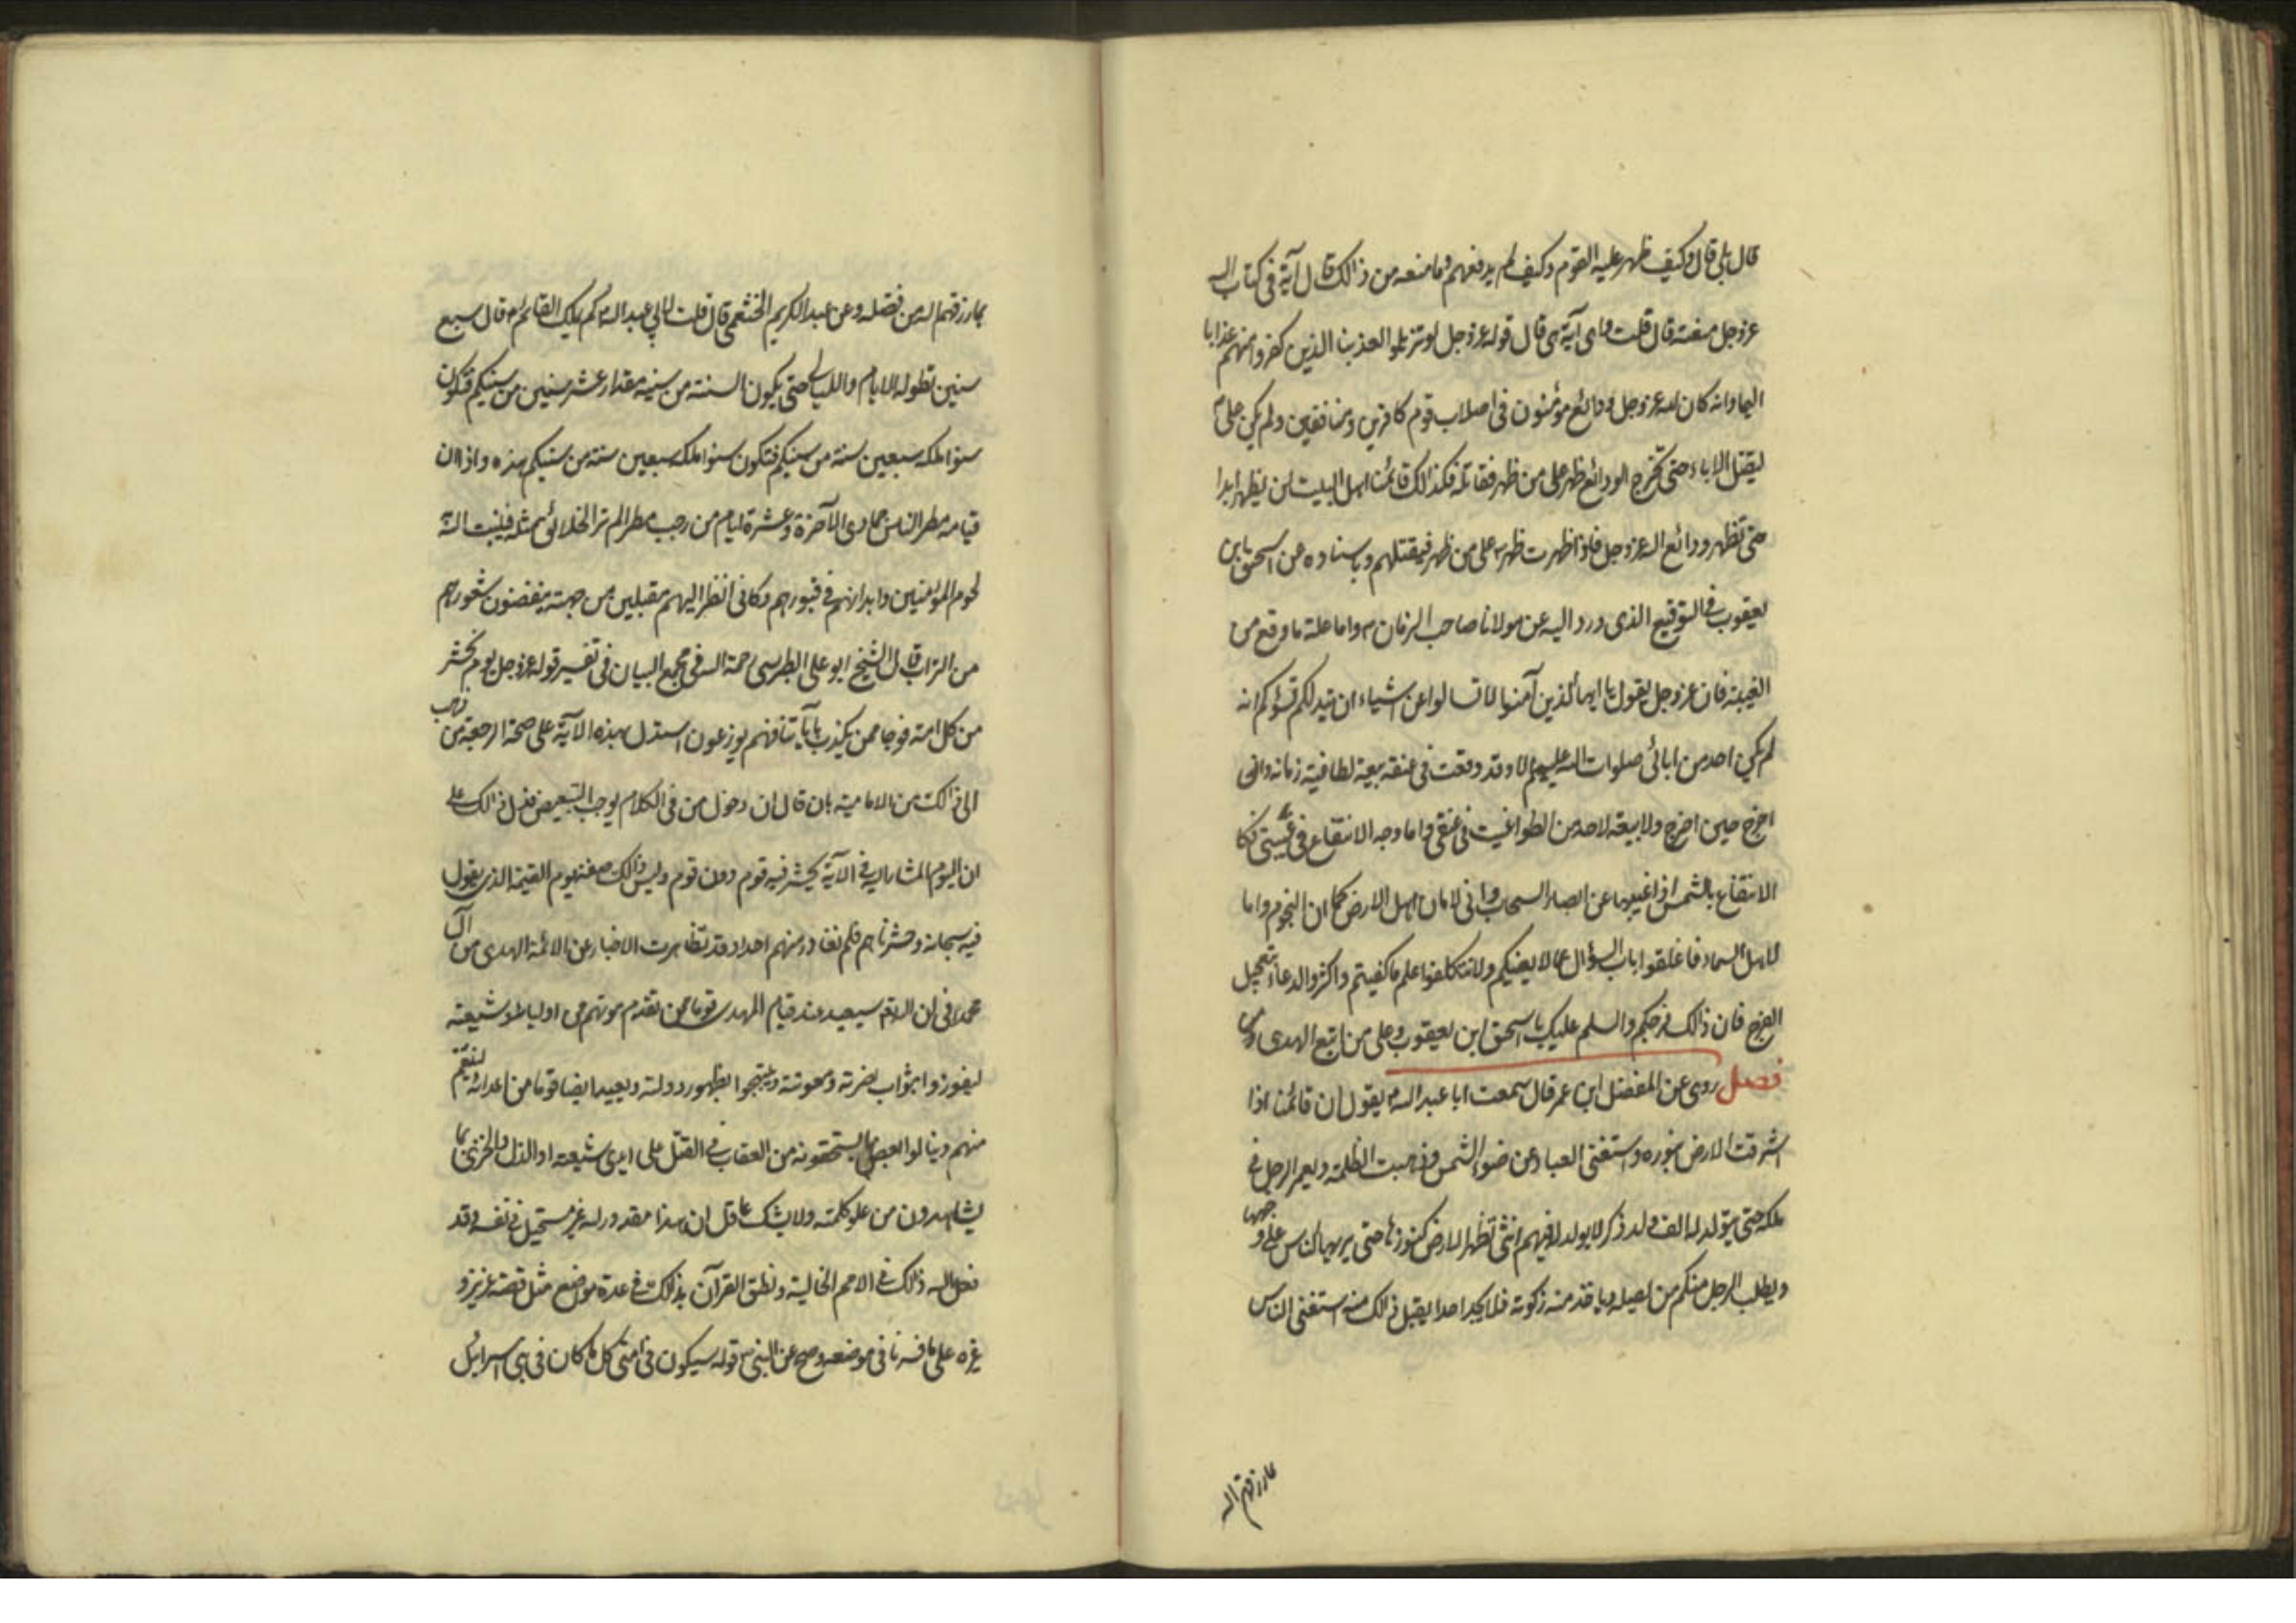 قال بلى قال وكيف ظهر عليه القوم وكيف لم يدفعهم وما منعه من ذالك قال آية فى كتاب الله
عزوجل منعته قال قلت واى آية هى قال قوله عزوجل لو تزيلوا لعذبنا الذين كفروا منهم عذابا
اليما وانه كان لله عزوجل ودائع مؤمنون فى اصلاب قوم كافرين ومنافقين ولم يكن على
ليقتل الاباء حتى تخرج الودائع ظهر على من ظهر فقاتله فكذالك قائمنا اهل البيت لن يظهر ابدا
حتى تظهر ودائع الله عزوجل فاذا ظهرت ظهر على من ظهر فيقتلهم وباسناده عن اسحق بن
يعقوب فى التوقيع الذى ورد اليه عن مولانا صاحب الزمان واما علة ما وقع من
الغيبة فان عزوجل يقول يا ايها الذين آمنوا لا تسالوا عن اشياء ان تبد لكم تسؤكم انه
لم يكن احد من ابائى صلوات الله عليهم الا وقد وقعت فى عنقه بيعة لطاغية زمانه وانى
اخرج حين اخرج ولا بيعة لاحد من الطواغيت فى عنقى واما وجه الانتفاع فى غيبتى فكا
الانتفاع بالشمس اذا غيبها عن ابصار السحاب وانى لامان اهل الارض كما ان النجوم واما
لاهل السماء فاغلقوا باب السؤال عما لا يعنيكم ولا تتكلفوا علم ما كفيتم واكثروا الدعاء بتعجيل
الفرج فان ذالك فرجكم والسلم عليك يا اسحق ابن يعقوب وعلى من اتبع الهدى
فصل روى عن المفضل ابن عمر قال سمعت ابا عبد الله يقول ان قائمنا اذا
اشرقت الارض بنوره واستغنى العباد عن ضوء الشمس وذهبت الظلمة ويعمر الرجل فى
ملكه حتى يتولد له الف ولد ذكر لا يولد له فيهم انثى تظهر الارض كنوزها حتى يريها الناس على وجهها
ويطلب الرجل منكم من يصله وياخذ منه زكوته فلا يجد احدا يقبل ذالك منه استغنى الناس
مما رزقهم الله
بما رزقهم الله من فضله وعن عبد الكريم الخثعمى قال قلت لابى عبد الله كم يملك القائم قال سبع
سنين تطول له الايام والليالى حتى يكون السنة من سنيه مقدار عشر سنين من سنيكم فتكون
سنوا ملكه سبعين سنة من سنيكم فتكون سنوا ملكه سبعين سنة من سنيكم هذه واذا ان
قيامه مطر الناس جمادى الآخرة وعشرة ايام من رجب مطرا لم تر الخلائق مثله فينبت الله
لحوم المؤمنين وابدانهم فى قبورهم وكانى انظر اليهم مقبلين من جهته ينفضون شعورهم
من التراب قال الشيخ ابو على الطبرسى رحمة الله فى مجمع البيان فى تفسير قوله عزوجل يوم نحشر
من كل امة فوجا ممن يكذب بآياتنا فهم يوزعون استدل بهذه الآية على صحة الرجعة من ذهب
الى ذالك من الامامية بان قال ان دخول من فى الكلام يوجب التبعيض فدل ذالك على
ان اليوم المشار اليه فى الآية يحشر فيه قوم دون قوم وليس ذالك صفة يوم القيمة الذى يقول
فيه سبحانه وحشرناهم فلم نغادر منهم احدا وقد تظاهرت الاخبار عن الائمة الهدى من آل
محمد فى ان الله سيعيد عند قيام المهدى قوما ممن تقدم موتهم من اوليائه وشيعته
ليفوزوا بثواب نصرته ومعونته ويبتهجوا بظهور دولته ويعيد ايضا قوما من اعدائه لينتقم
منهم وينالوا بعض ما يستحقونه من العقاب فى القتل على ايدى شيعته او الذل والخزى بما
يشاهدون من علو كلمته ولا يشك عاقل ان هذا مقدور لله غير مستحيل فى نفسه وقد
فعل الله ذالك فى الامم الخالية ونطق القرآن بذالك فى عدة مواضع مثل قصة عزيز و
غيره على ما فسرنا فى موضعه وصح عن النبى قوله سيكون فى امتى كل ما كان فى بنى اسرائيل